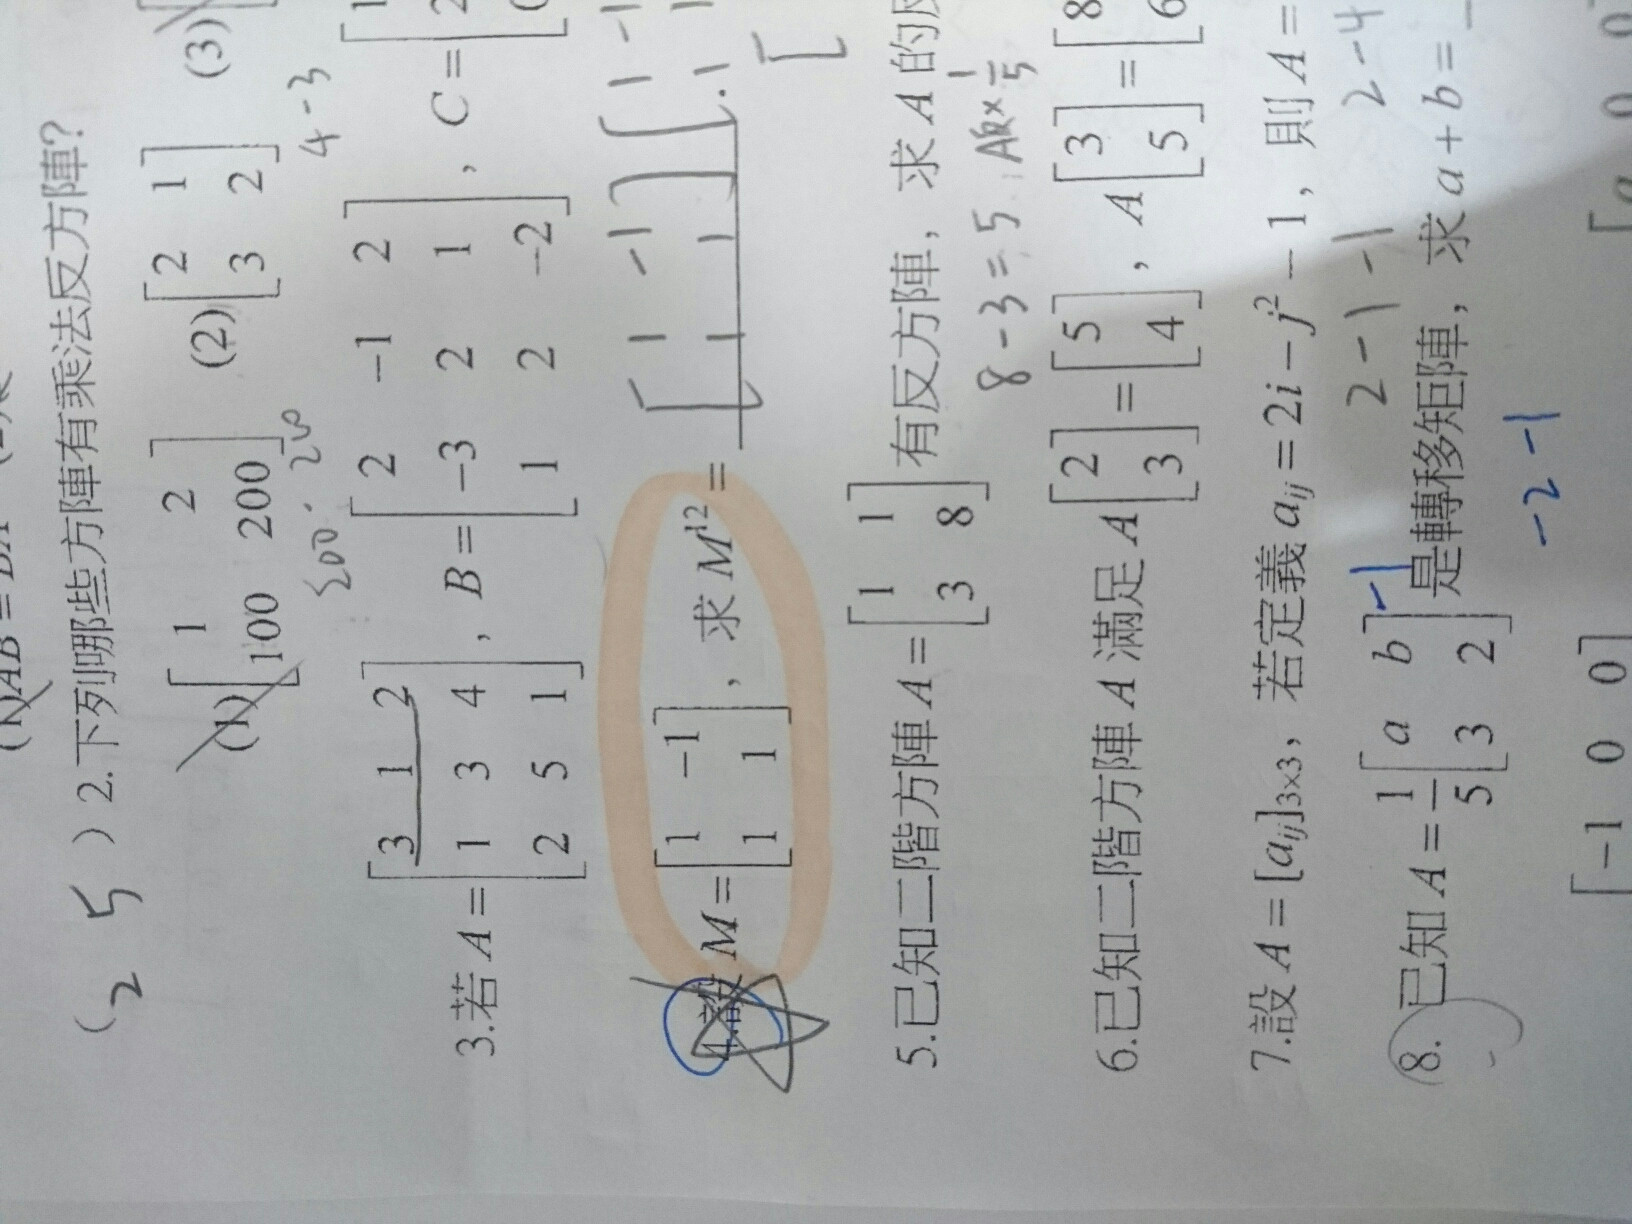 (1)AB = BA
( 2 5 ) 2.下列哪些方陣有乘法反方陣?
(1)[1 2
100 200] (2)[2 1
3 2] (3)[
200 - 200 4-3
3.若 A = [3 1 2
1 3 4
2 5 1], B = [2 -1 2
-3 2 1
1 2 -2], C = [
4.設 M = [1 -1
1 1], 求 M¹² =
[1 -1
1 1] [1 -1
1
[
5.已知二階方陣 A = [1 1
3 8] 有反方陣, 求 A 的反
8-3=5
×1/5
6.已知二階方陣 A 滿足 A[2
3] = [5
4], A[3
5] = [8
6
7.設 A = [aᵢⱼ]₃ₓ₃, 若定義 aᵢⱼ = 2i - j² - 1, 則 A =
2-1-1 2-4
8. 已知 A = 1/5 [a b
3 2] 是轉移矩陣, 求 a + b =
-1
-2 -1
[-1 0 0] [a 0 0